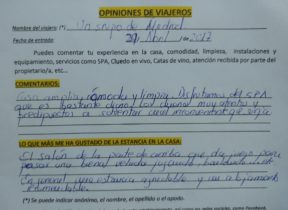 OPINIONES DE VIAJEROS
Nombre del viajero: (*) Un grupo de Madrid
Fecha de entrada: 29 Abril de 2017
Puedes comentar tu experiencia en la casa, comodidad, limpieza, instalaciones y
equipamiento, servicios como SPA, Cluedo en vivo, Catas de vino, atención recibida por parte del
propietario/a, etc...
COMENTARIOS:
Casa amplia, cómoda y limpia. Disfrutamos del SPA
que es bastante Los dueños muy atentos y
predispuestos a solventar cual inconveniente que surja
LO QUE MÁS ME HA GUSTADO DE LA ESTANCIA EN LA CASA:
El salón de la parte de arriba que da juego para
pasar una buena velada jugando, bailando etc.
En general, una estancia agradable y un alojamiento
recomendable.
(*) Se puede indicar anónimo, el nombre, el apellido o el apodo.